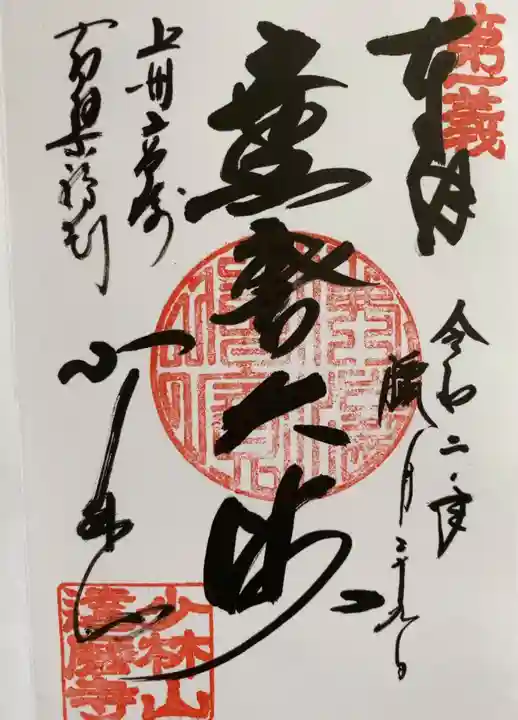 第一義
令和二年
臘月二十九日
達磨大師
上州高崎
黄檗禅刹
少林山
少林山
達磨寺